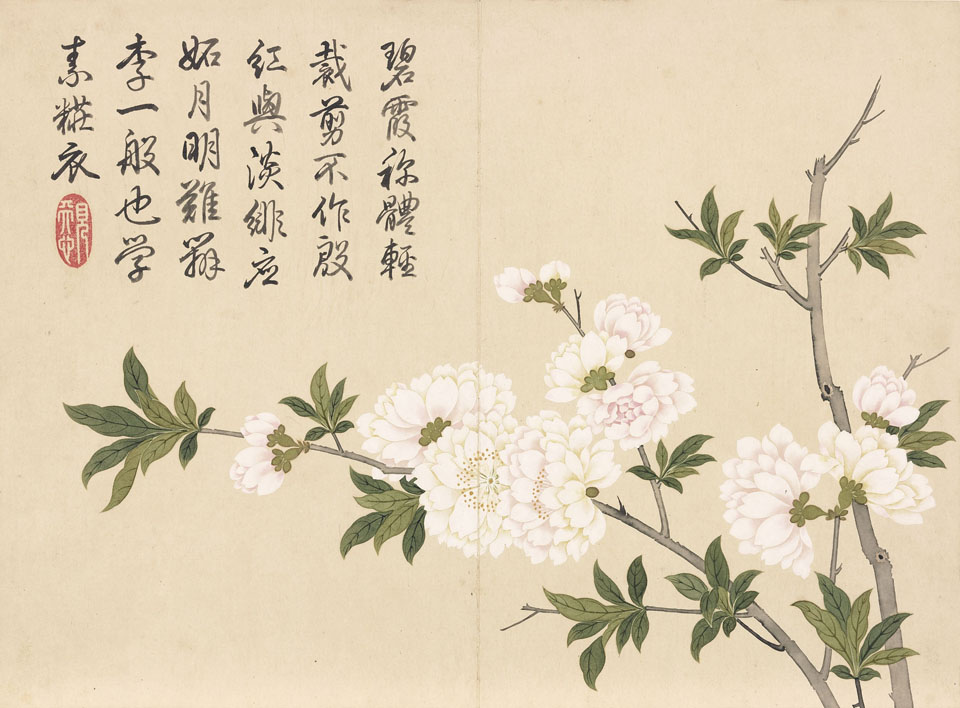 碧霞称體輕
裁剪不作殷
紅與淡緋应
妬月明難辨
李一般也学
素糚衣